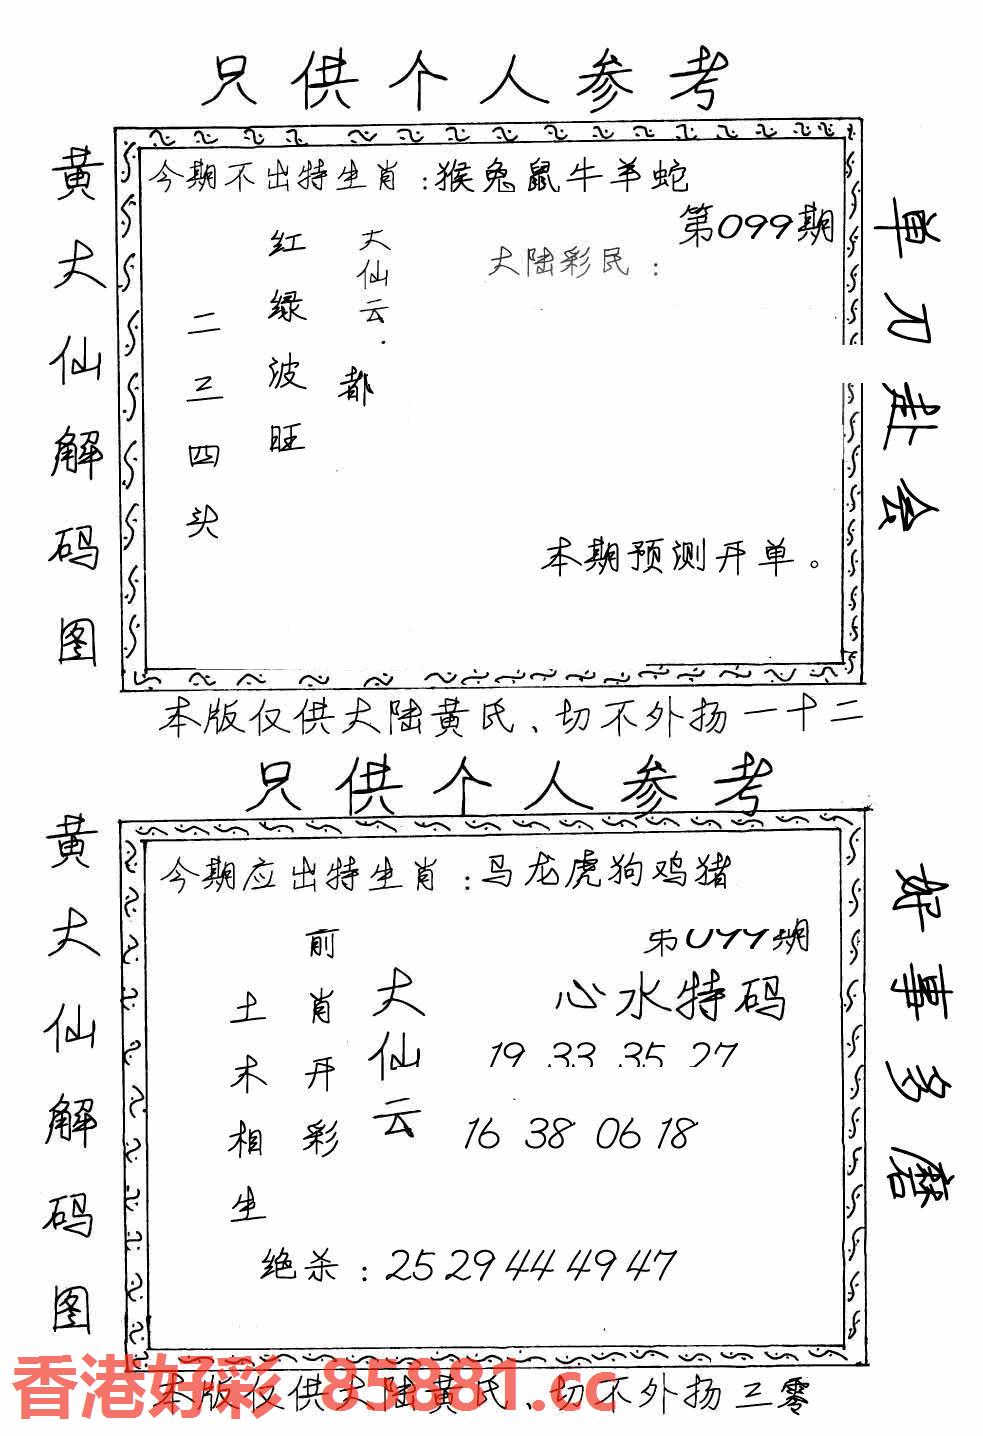 只供个人参考
黄大仙解码图
今期不出特生肖:猴兔鼠牛羊蛇
第099期
大陆彩民:
大仙云.
都
红绿波旺
二三四头
本期预测开单。
单刀赴会
本版仅供大陆黄氏、切不外扬一十二
只供个人参考
黄大仙解码图
今期应出特生肖:马龙虎狗鸡猪
第099期
心水特码
19 33 35 27
16 38 06 18
大仙云
前肖开彩
土木相生
绝杀:25 29 44 49 47
好事多磨
本版仅供大陆黄氏、切不外扬三零
香港好彩 85881.cc